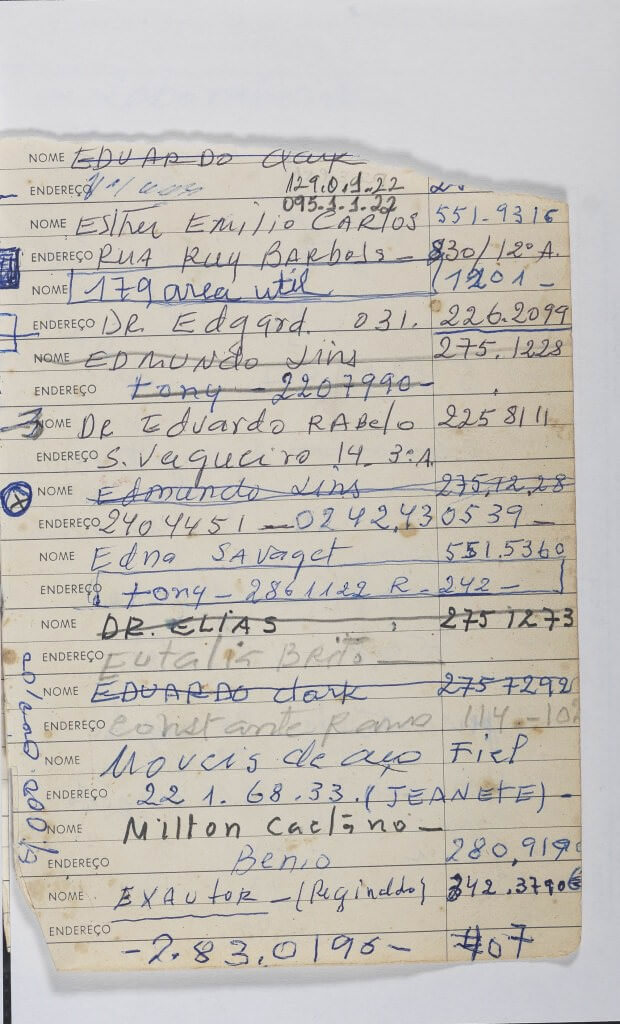 NOME EDUARDO Clark
ENDEREÇO 129.0.1.22
095.1.1.22
NOME ESther Emilio CARlos 551-9316
ENDEREÇO RUA Ruy BARBosa - 830/12º A.
NOME 179 area util (1201 -
ENDEREÇO DR. Edgard. 031. 226.2099
NOME EDMUNDO Lins 275.1228
ENDEREÇO tony - 2207990-
NOME DR Eduardo RABelo 2258111
ENDEREÇO S. Vaqueiro 14. 3º A.
NOME Edmundo Lins 275,12,28
ENDEREÇO 2404451 - 0242,430539 -
NOME Edna SAVaget 551.5360
ENDEREÇO tony - 2861122 R - 242 -
NOME DR. ELIAS 2751273
ENDEREÇO Eutalia Brito -
NOME EDUARDO Clark 2757292
ENDEREÇO Constante Ramos 114 - 102
NOME Moveis de aço Fiel
ENDEREÇO 221.68.33. (JEANETE) -
NOME Milton Caetano -
ENDEREÇO Benio 280,919
NOME EXAutor - (Reginaldo) 342.3790
ENDEREÇO
- 2.83.0196 - 407